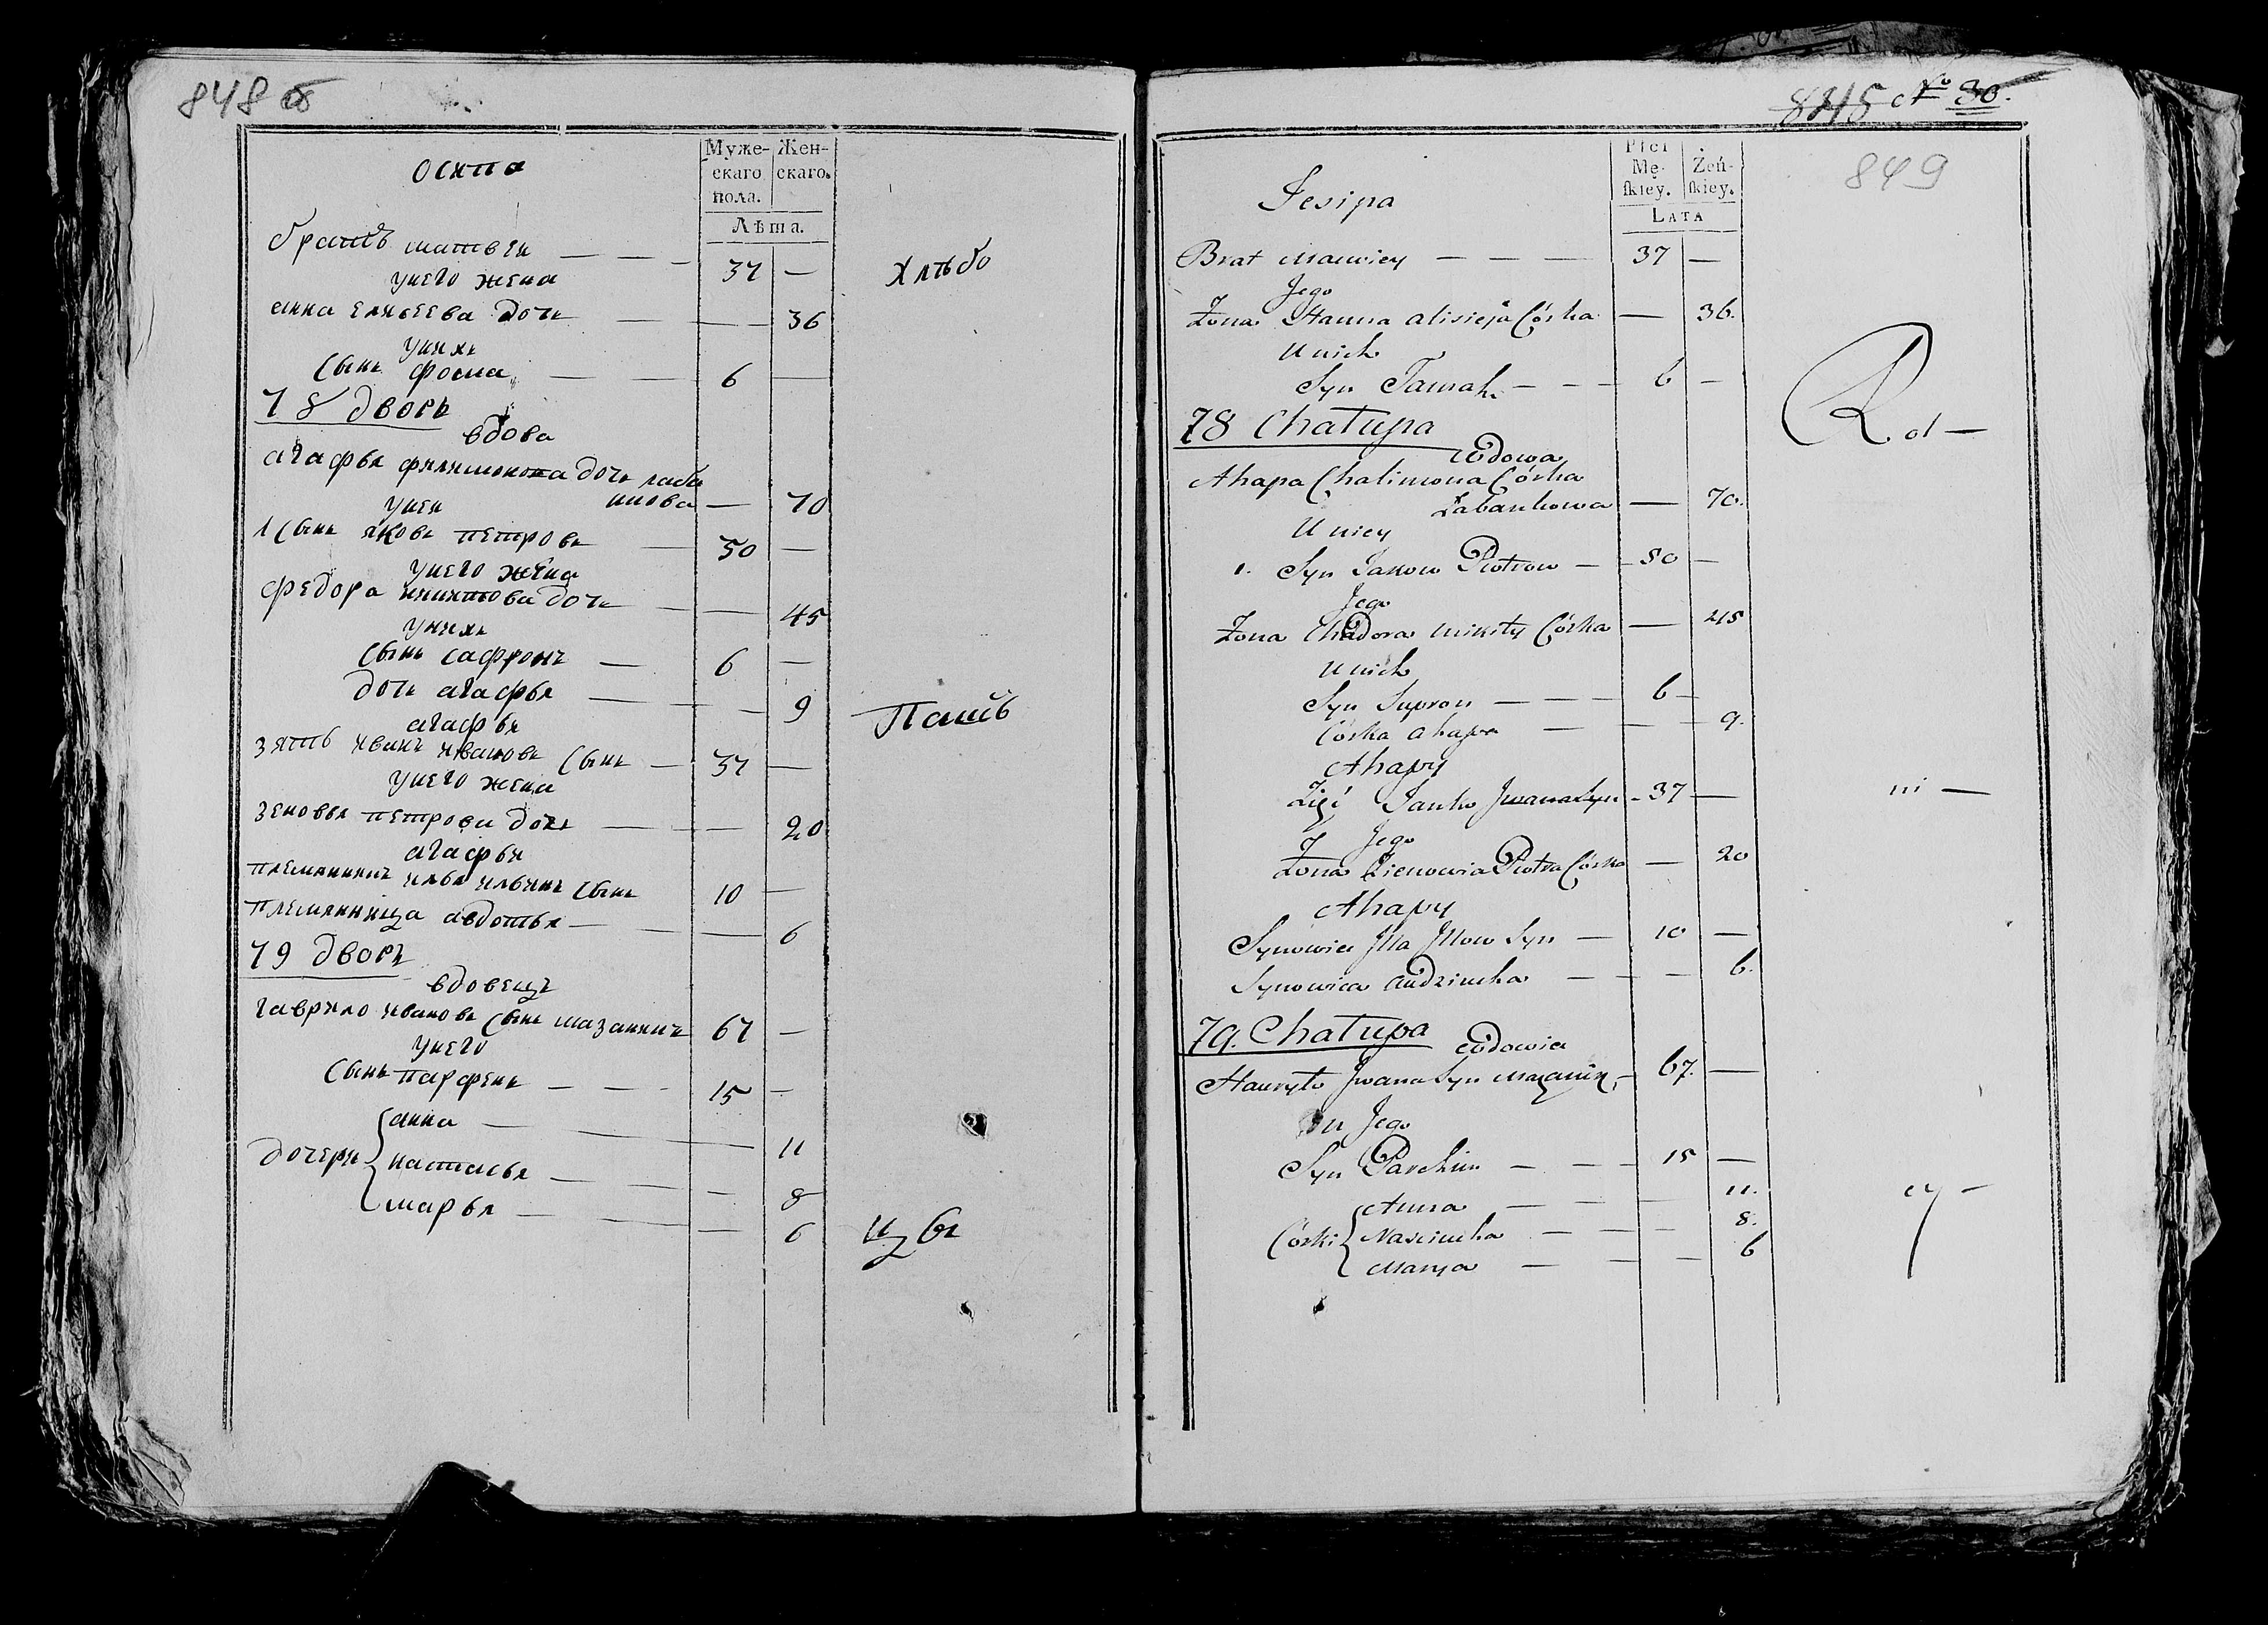 848 об
Муже-
скаго
пола.
Жен-
скаго.
Лѣта.
осипа
братъ матвеи — — — 37 —
унего жена
анна елисеева дочь — — — 36
унихъ
сынъ фома — — 6 —
78 дворъ
вдова
агафья филимонова дочь лаба
нкова — 70
унеи
1 сынъ яковъ петровъ — 50 —
унего жена
федора никитова дочь — — 45
унихъ
сынъ сафронъ — 6 —
дочь агафья — — — 9
агафьи
зять иванъ ивановъ сынъ — 37 —
унего жена
зеновья петрова дочь — — — 20
агафьи
племянникъ илья ильинъ сынъ 10 —
племянница авдотья — — — 6
79 дворъ
вдовецъ
гаврило ивановъ сынъ мазанникъ 67 —
унего
сынъ парфенъ — — — 15 —
анна — — — — 11
дочери настасья — — — 8
марья — — — — 6
хлѣбо
Пашъ
цы
845 № 30.
849
Płci
Mę-
ſkiey.
Żeń-
ſkiey.
Lata
Jesipa
Brat Maciey — — — 37 —
Jego
Żona Hanna Alisieja Córka — 36.
U nich
Syn Tamah — — — 6 —
78 Chałupa
Wdowa
Ahapa Chalimona Córka
Łabankowa — 70.
U niey
1. Syn Jakow Piotrow — — 50 —
Jego
Żona Chadora Mikity Córka — 45
U nich
Syn Supron — — — 6 —
Córka Ahapa — — — 9.
Ahapy
Zięć Janko Jwana Syn - 37 —
Jego
Żona Zienowia Piotra Córka — 20
Ahapy
Synowiec Jlla Jllow Syn — 10 —
Synowica Audziucha — — — 6.
79. Chałupa
Wdowiec
Hauryło Jwana Syn Mazanik — 67. —
u Jego
Syn Parchim — — — 15 —
Anna — — — 11.
Córki Nasciucha — — — 8.
Marya — — — 6